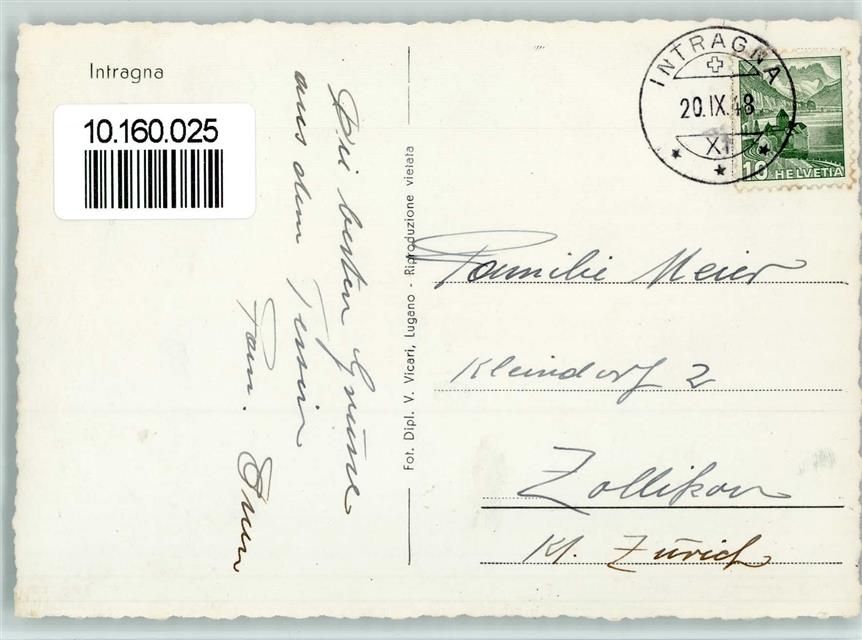 Intragna
10.160.025
Die besten Grüsse
aus dem Tessin
Fam.
Fot. Dipl. V. Vicari, Lugano - Riproduzione vietata
INTRAGNA
20.IX.48
XI
10 HELVETIA
Familie Meier
Kleindorf 2
Zollikon
Kt. Zürich